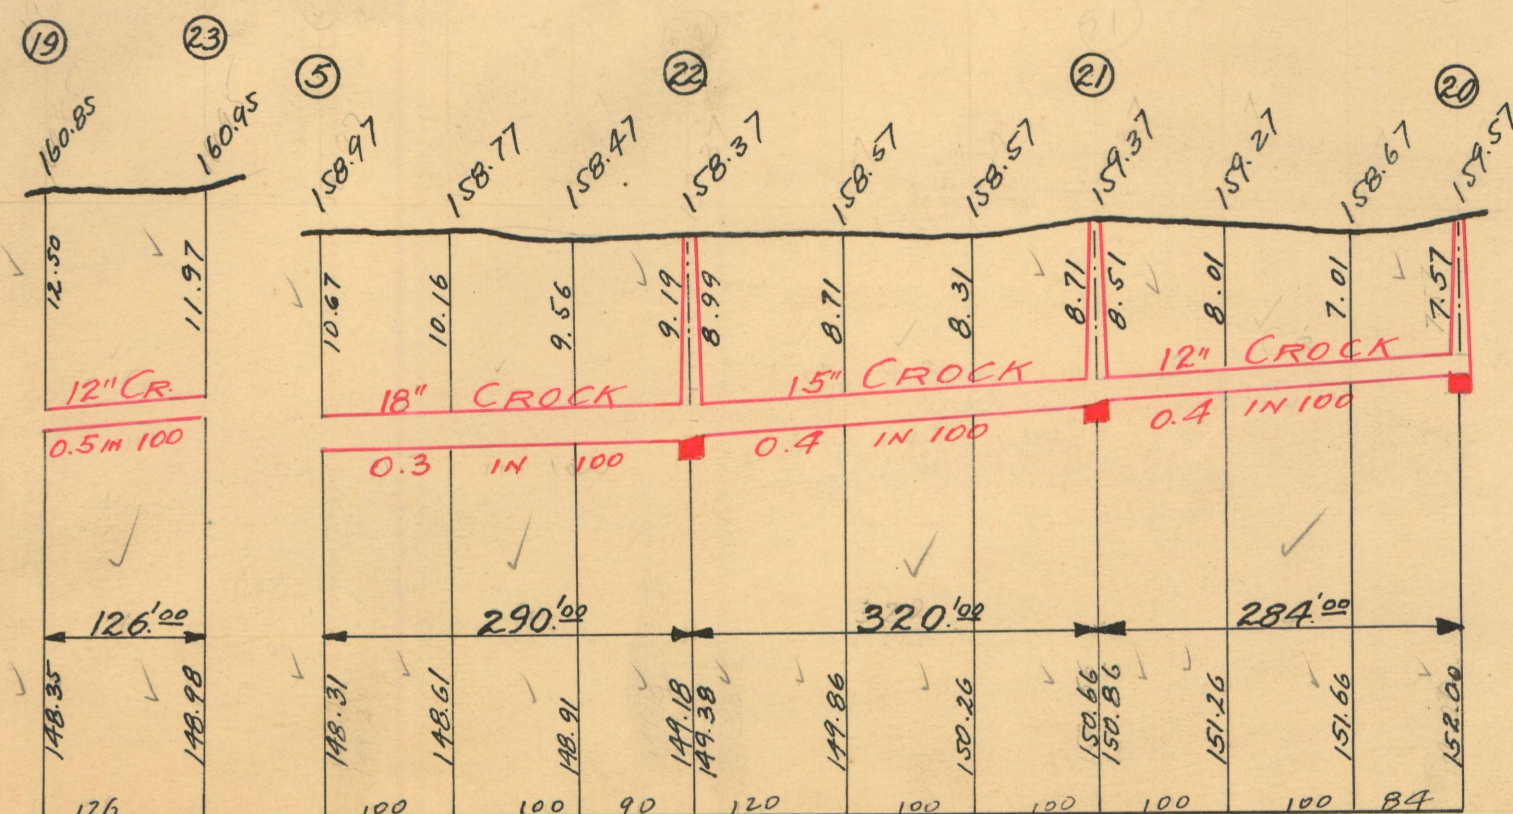 19 23 5 22 21 20
160.85 160.95 158.97 158.77 158.47 158.37 158.57 158.57 159.37 159.27 158.67 159.57
12.50 11.97 10.67 10.16 9.56 9.19 8.99 8.71 8.31 8.71 8.51 8.01 7.01 7.57
12" CR. 18" CROCK 15" CROCK 12" CROCK
0.5 IN 100 0.3 IN 100 0.4 IN 100 0.4 IN 100
126.'00 290.'00 320.'00 284.'00
148.35 148.98 148.31 148.61 148.91 149.18 149.38 149.86 150.26 150.66 150.86 151.26 151.66 152.00
126 100 100 90 120 100 100 100 100 84